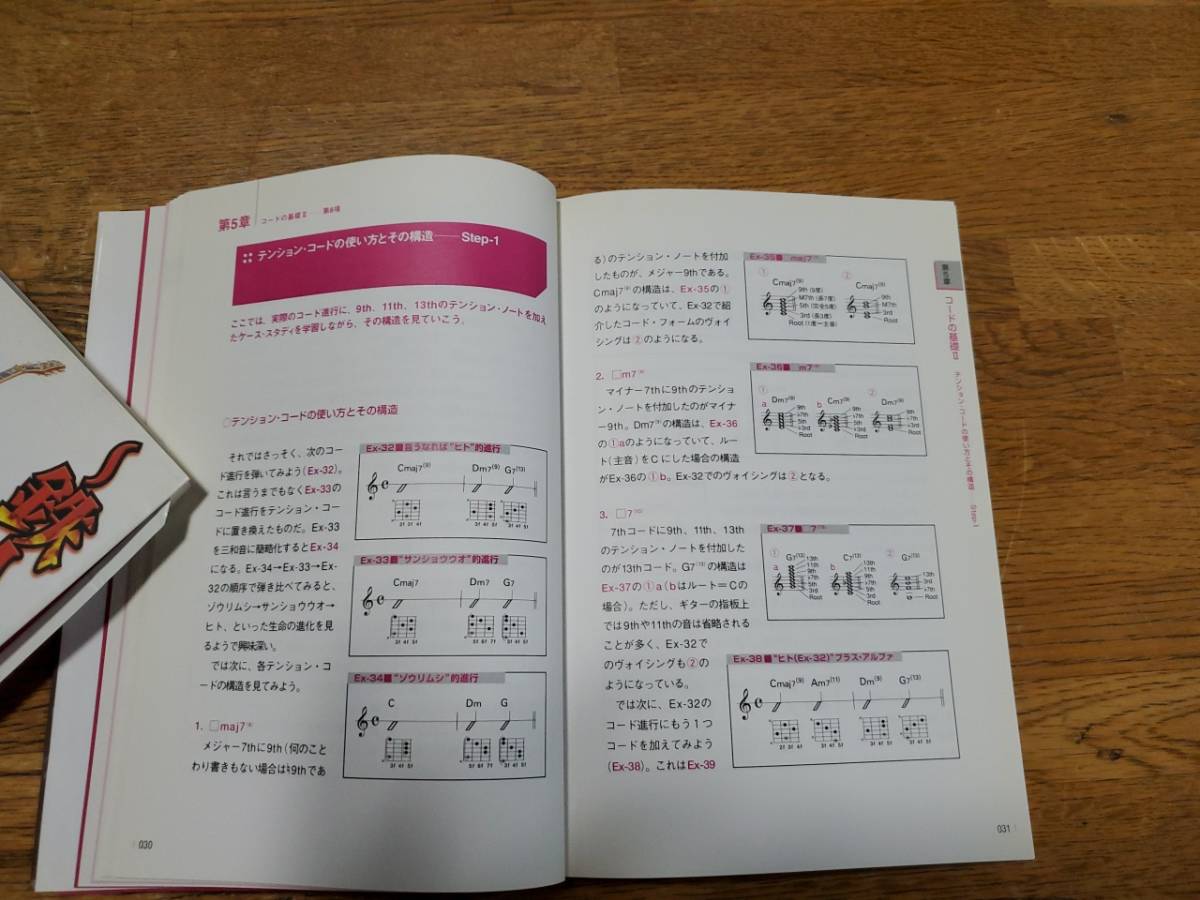 第5章
コードの基礎Ⅱ
テンション・コードの使い方とその構造——Step-1
ここでは、実際のコード進行に、9th、11th、13thのテンション・ノートを加え
たケース・スタディを学習しながら、その構造を見ていこう。
○テンション・コードの使い方とその構造
それではさっそく、次のコー
ド進行を弾いてみよう(Ex-32)。
これは言うまでもなくEx-33の
コード進行をテンション・コー
ドに置き換えたものだ。Ex-33
を三和音に簡略化するとEx-34
になる。Ex-34→Ex-33→Ex-
32の順序で弾き比べてみると、
ゾウリムシ→サンショウウオ→
ヒト、といった生命の進化を見
るようで興味深い。
では次に、各テンション・コ
ードの構造を見てみよう。
1. □maj7(9)
メジャー7thに9th(何のこと
わり書きもない場合は♮9thであ
Ex-32■言うなれば“ヒト”的進行
Cmaj7(9) Dm7(9) G7(13)
Ex-33■“サンショウウオ”的進行
Cmaj7 Dm7 G7
Ex-34■“ゾウリムシ”的進行
C Dm G
030
る)のテンション・ノートを付加
したものが、メジャー9thである。
Cmaj7(9)の構造は、Ex-35の①
のようになっていて、Ex-32で紹
介したコード・フォームのヴォイ
シングは②のようになる。
2. □m7(9)
マイナー7thに9thのテンショ
ン・ノートを付加したのがマイナ
ー9th。Dm7(9)の構造は、Ex-36
の①aのようになっていて、ルー
ト(主音)をCにした場合の構造
がEx-36の①b。Ex-32でのヴォイシングは②となる。
3. □7(13)
7thコードに9th、11th、13th
のテンション・ノートを付加した
のが13thコード。G7(13)の構造は
Ex-37の①a(bはルート=Cの
場合)。ただし、ギターの指板上
では9thや11thの音は省略される
ことが多く、Ex-32で
のヴォイシングも②の
ようになっている。
では次に、Ex-32の
コード進行にもう1つ
コードを加えてみよう
(Ex-38)。これはEx-39
Ex-35■ maj7(9)
① ②
Cmaj7(9) Cmaj7(9)
9th (9度)
M7th (長7度)
5th (完全5度)
3rd (長3度)
Root (1度=主音)
9th
M7th
3rd
Root
Ex-36■ m7(9)
① ②
a Dm7(9) b Cm7(9) Dm7(9)
9th
♭7th
5th
♭3rd
Root
9th
♭7th
5th
♭3rd
Root
9th
♭7th
♭3rd
Root
Ex-37■ 7(13)
① ②
a G7(13) b C7(13) G7(13)
13th
11th
9th
♭7th
5th
3rd
Root
13th
11th
9th
♭7th
5th
3rd
Root
13th
3rd
♭7th
Root
Ex-38■“ヒト(Ex-32)”プラス・アルファ
Cmaj7(9) Am7(11) Dm(9) G7(13)
第5章
コードの基礎Ⅱ
テンション・コードの使い方とその構造
Step-1
031